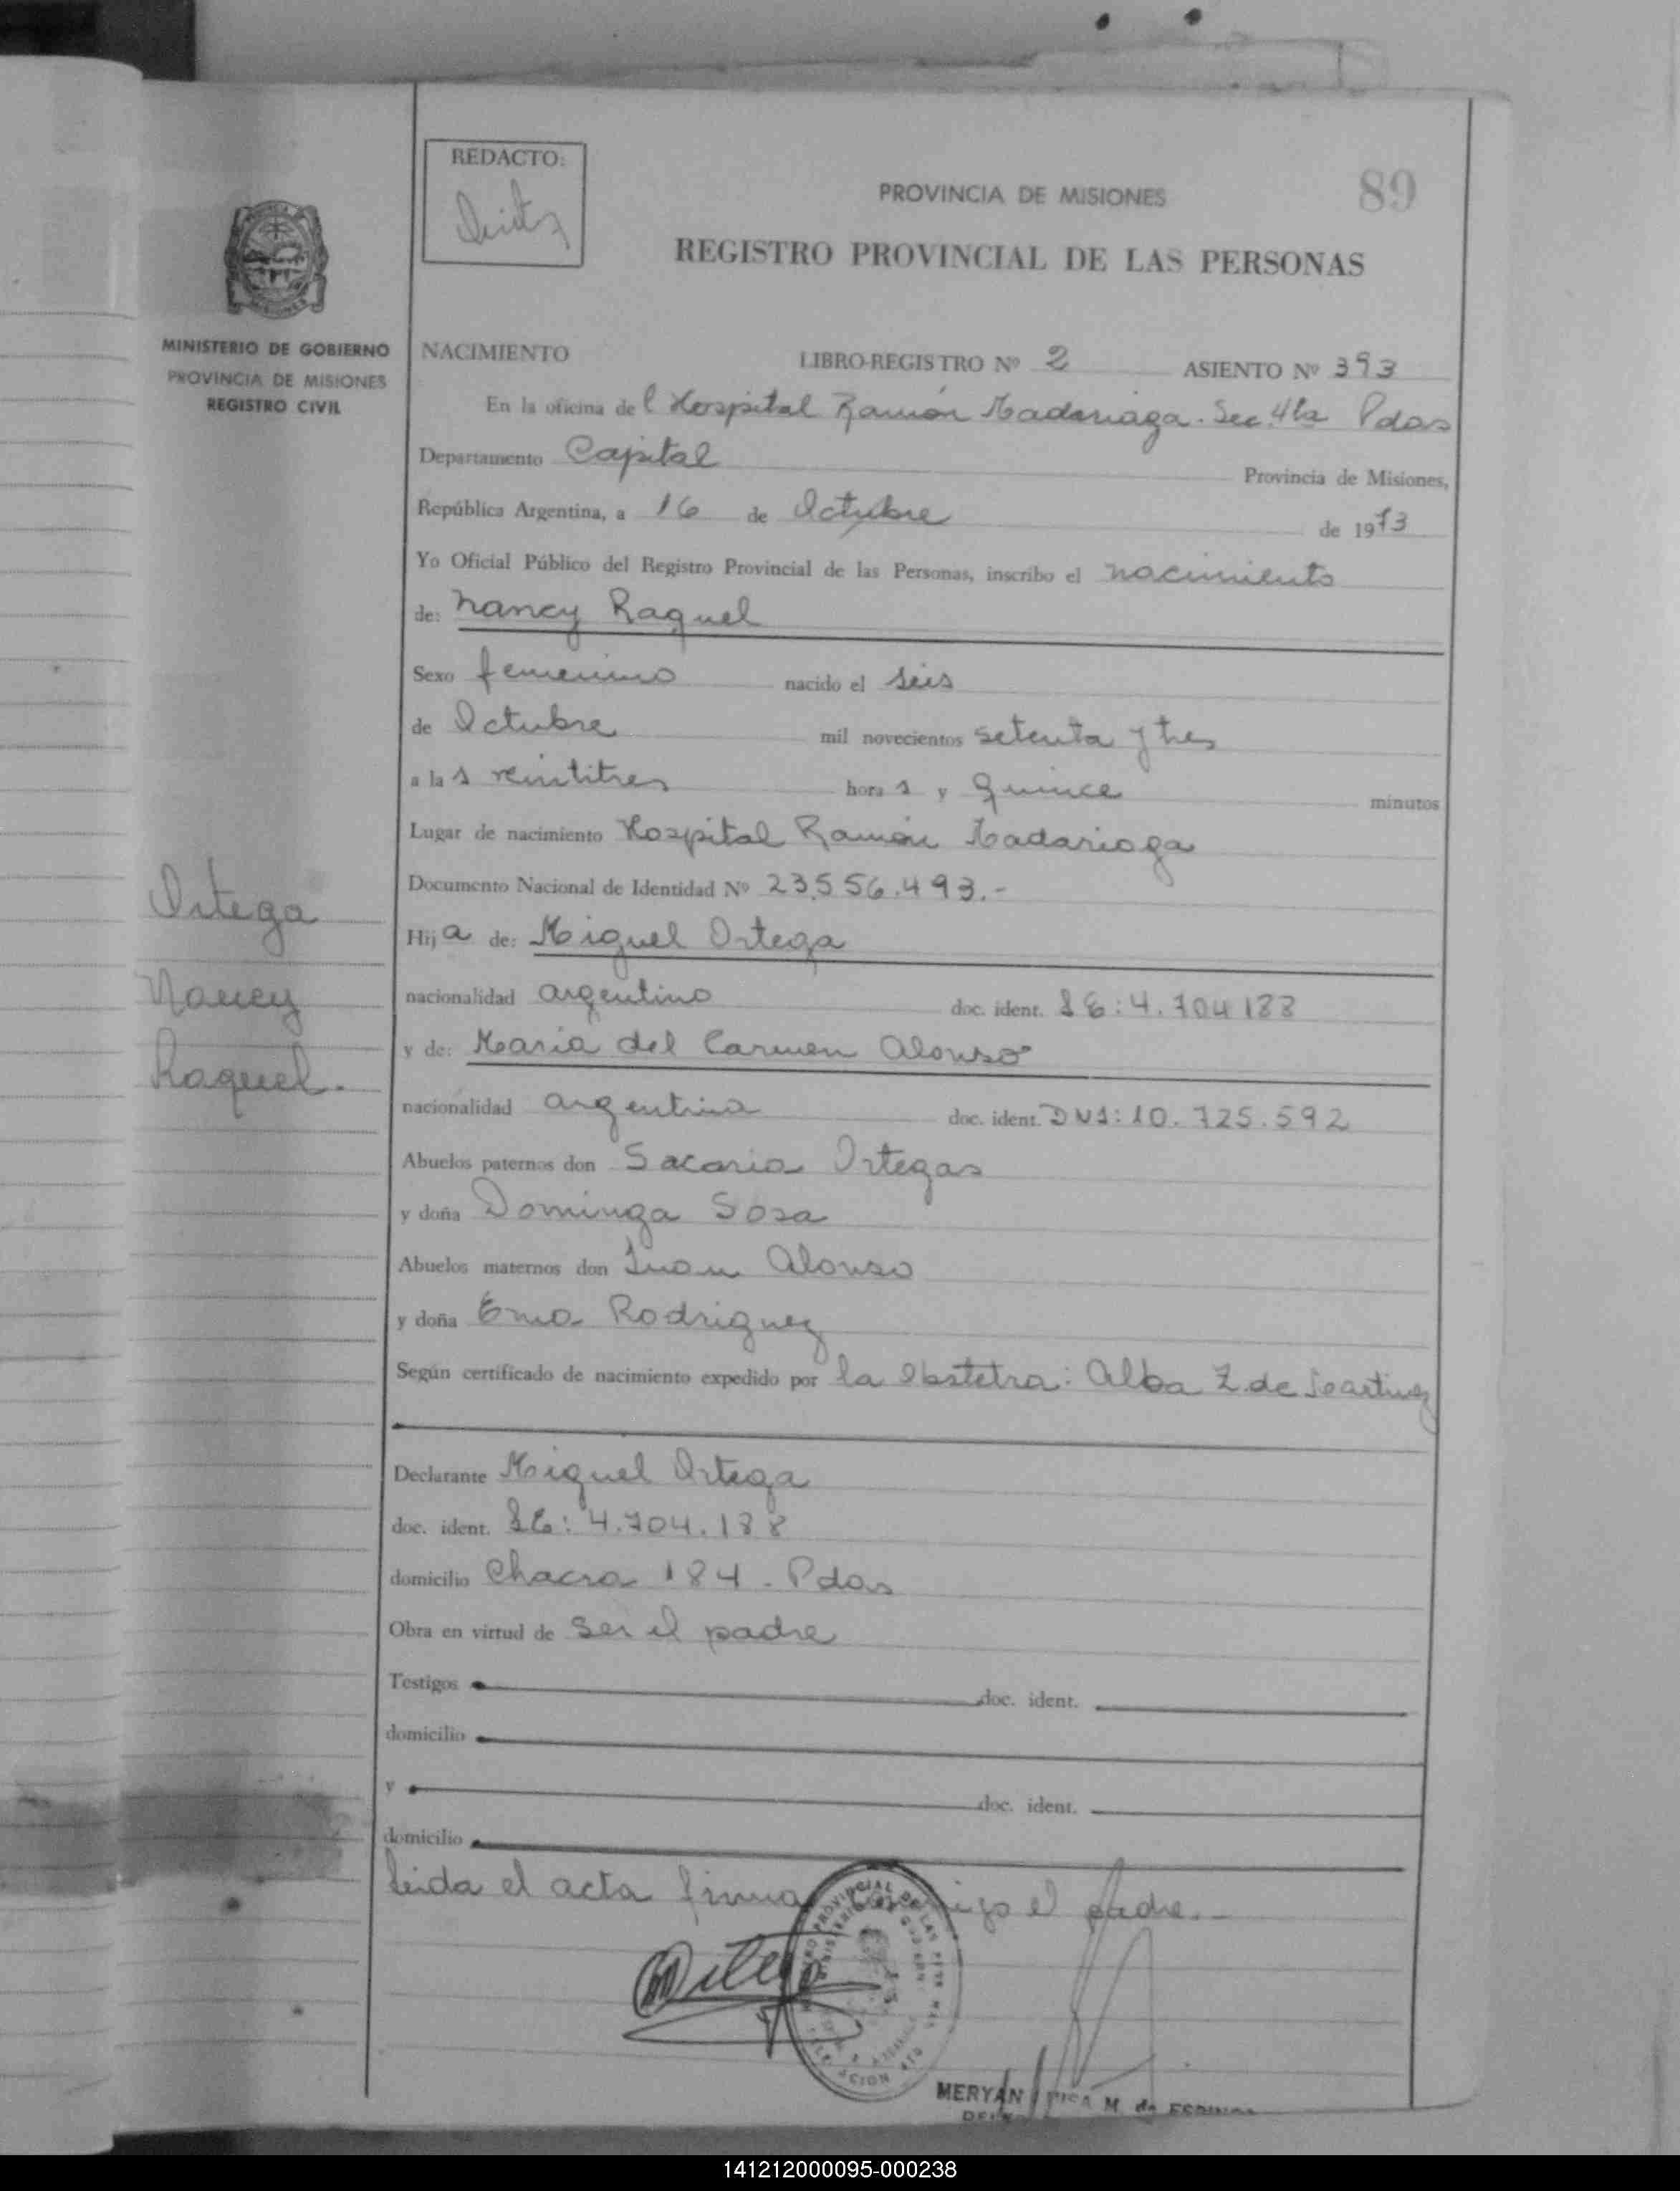 REDACTO:
PROVINCIA DE MISIONES
89
REGISTRO PROVINCIAL DE LAS PERSONAS
MINISTERIO DE GOBIERNO
PROVINCIA DE MISIONES
REGISTRO CIVIL
NACIMIENTO LIBRO-REGISTRO Nº 2 ASIENTO Nº 393
En la oficina del Hospital Ramón Madariaga. Sec. 4ta Pdas
Departamento Capital Provincia de Misiones,
República Argentina, a 16 de Octubre de 1973
Yo Oficial Público del Registro Provincial de las Personas, inscribo el nacimiento
de: Nancy Raquel
Sexo femenino nacido el seis
de Octubre mil novecientos setenta y tres
a las veintitres horas y quince minutos
Lugar de nacimiento Hospital Ramón Madariaga
Documento Nacional de Identidad Nº 23.556.493.-
Hija de: Miguel Ortega
nacionalidad argentino doc. ident. LE: 4.704188
y de: Maria del Carmen Alonso
nacionalidad argentina doc. ident. DNI: 10.725.592
Abuelos paternos don Sacaria Ortegas
y doña Dominga Sosa
Abuelos maternos don Juan Alonso
y doña Ema Rodriguez
Según certificado de nacimiento expedido por la Obstetra: Alba Z. de Martinez
Declarante Miguel Ortega
doc. ident. LE: 4.704.188
domicilio Chacra 184 - Pdas
Obra en virtud de ser el padre
Testigos doc. ident.
domicilio
y doc. ident.
domicilio
leida el acta firma conmigo el padre.-
Ortega
Nancy
Raquel.
MERYAN M. de
141212000095-000238